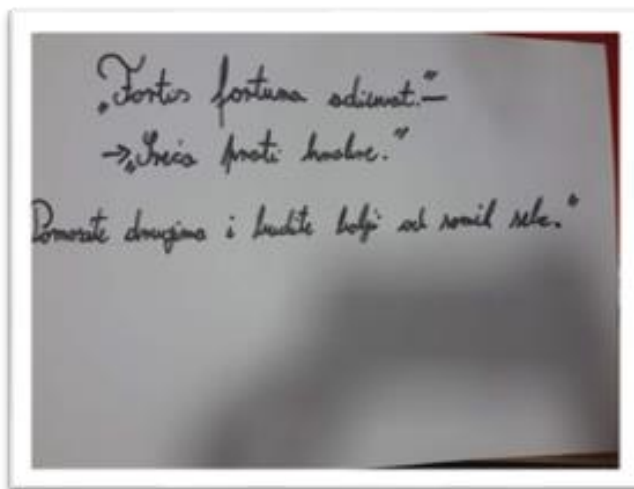 „Fortis fortuna adiuvat.“ –
→„Sreća prati hrabre.“
Pomozite drugima i budite bolji od samih sebe.“